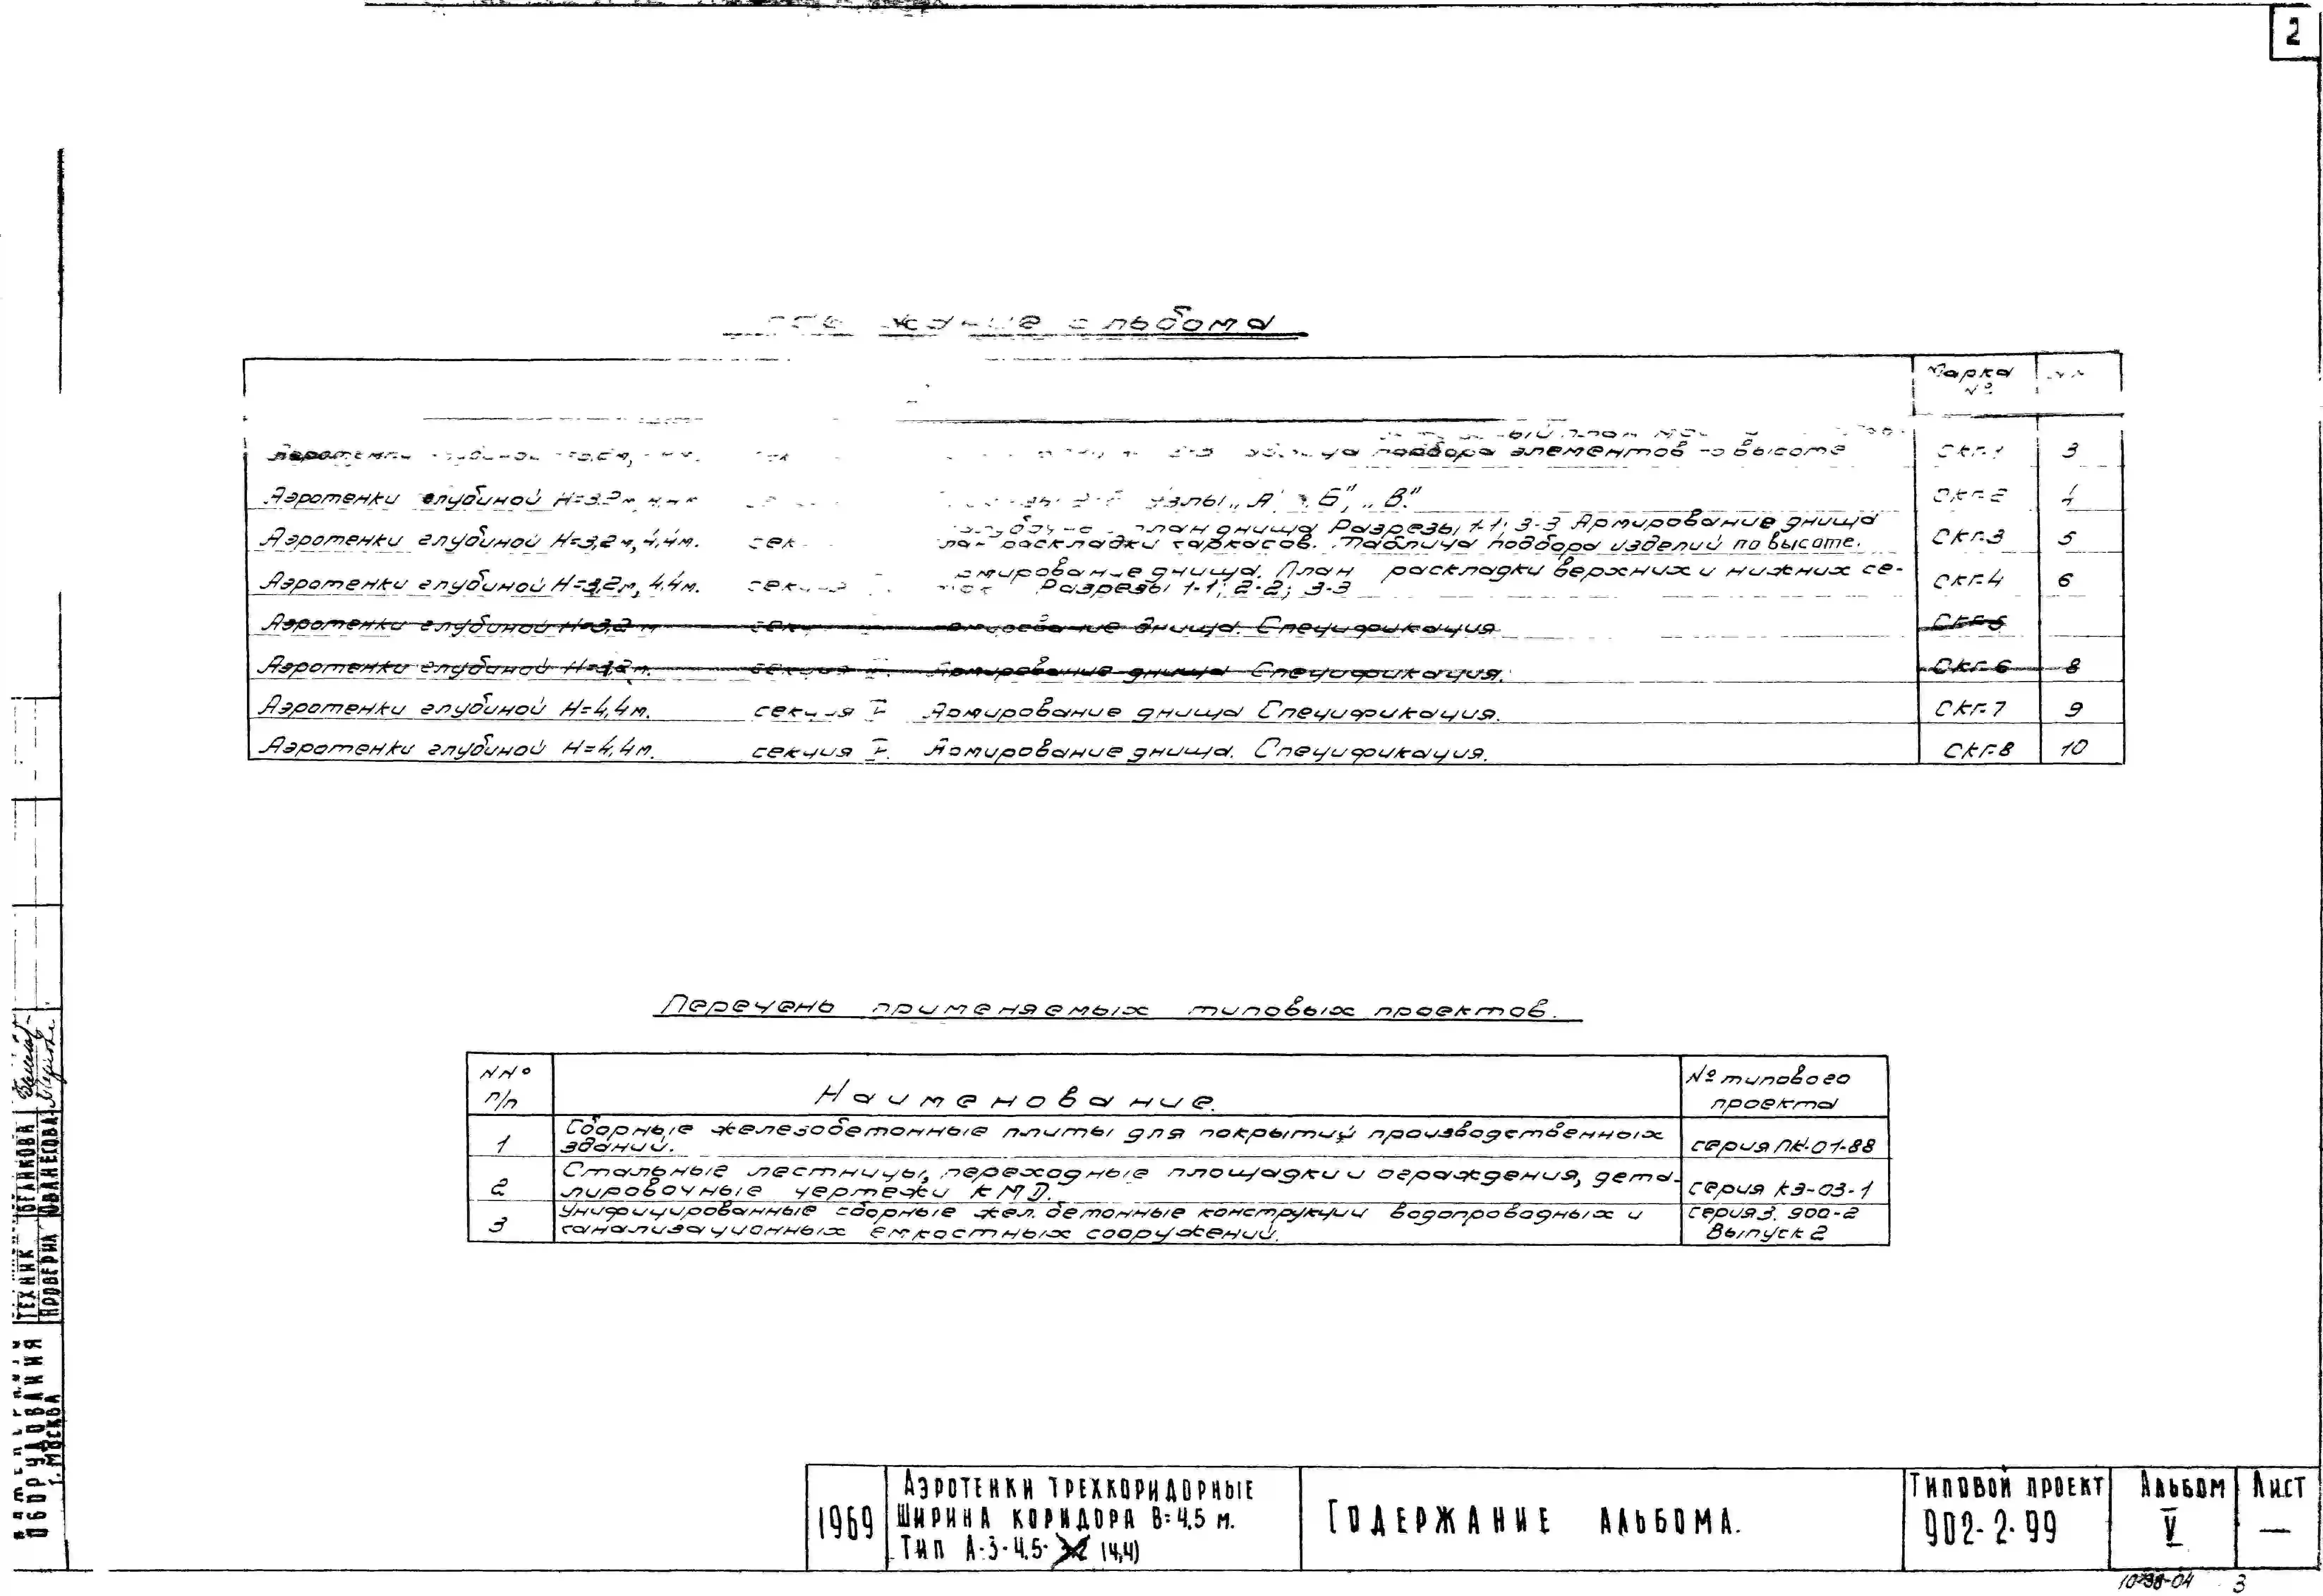 2
альбома
Марка
№
подбора элементов по высоте
СКГ-1
3
Аэротенки глубиной Н=3.2м
Узлы „А", „Б", „В".
СКГ-2
4
план днища Разрезы 1-1; 3-3 Армирование днища
Аэротенки глубиной Н=3,2м, 4,4м.
раскладки каркасов. Таблица подбора изделий по высоте.
СКГ-3
5
днища. План раскладки верхних и нижних се-
Аэротенки глубиной Н=3,2м, 4,4м.
секция
Разрезы 1-1; 2-2; 3-3
СКГ-4
6
Аэротенки глубиной Н=3,2м
днища. Спецификация
СКГ-5
Аэротенки глубиной Н=3,2м.
секция
Армирование днища Спецификация.
СКГ-6
8
Аэротенки глубиной Н=4,4м.
секция I
Армирование днища Спецификация.
СКГ-7
9
Аэротенки глубиной Н=4,4м.
секция I.
Армирование днища. Спецификация.
СКГ-8
10
Перечень применяемых типовых проектов.
NN°
п/п
Наименование.
№ типового
проекта
1
Сборные железобетонные плиты для покрытий производственных
зданий.
серия ПК-01-88
2
Стальные лестницы, переходные площадки и ограждения, дета-
лировочные чертежи КМД.
серия КЭ-03-1
3
Унифицированные сборные жел. бетонные конструкции водопроводных и
канализационных емкостных сооружений.
серия 3. 900-2
Выпуск 2
ТЕХНИК
ПРОВЕРИЛ
ОВАНЕСОВА
ОБОРУДОВАНИЯ
г. МОСКВА
1969
АЭРОТЕНКИ ТРЕХКОРИДОРНЫЕ
ШИРИНА КОРИДОРА В=4,5 м.
ТИП А-3-4,5- (4,4)
СОДЕРЖАНИЕ АЛЬБОМА.
ТИПОВОЙ ПРОЕКТ
902-2-99
АЛЬБОМ
V
ЛИСТ
—
10798-04 3